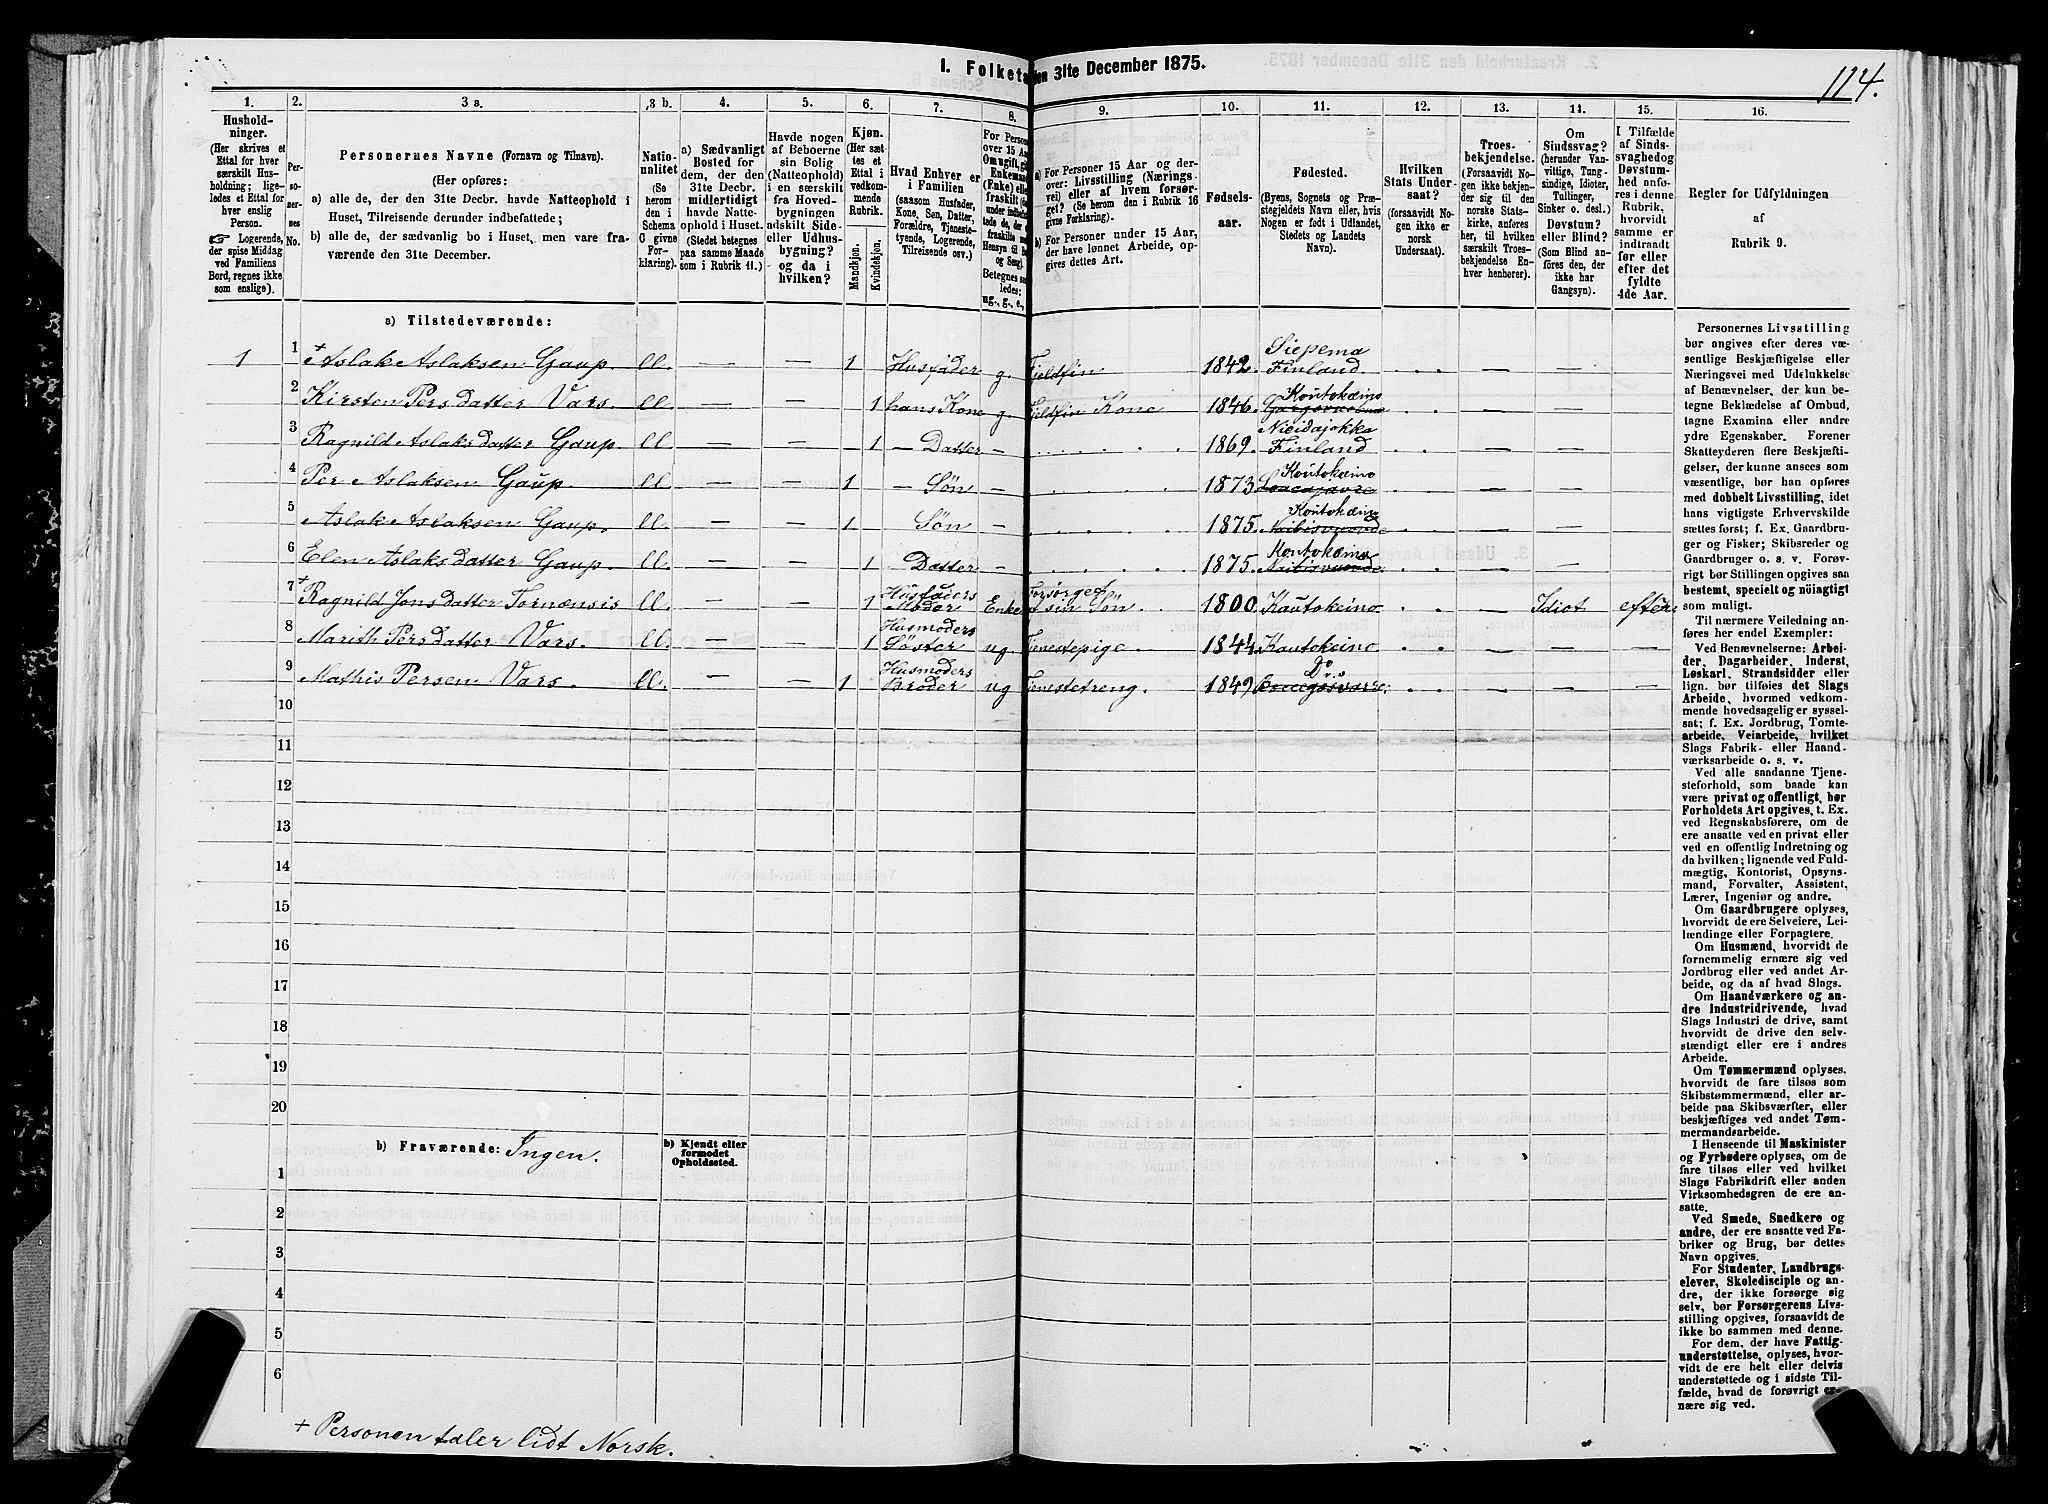 114.
I. Folketa
en 31te December 1875.
1. 2. 3 a. 3 b. 4. 5. 6. 7. 8. 9. 10. 11. 12. 13. 14. 15. 16.
Hushold-
ninger.
(Her skrives et
Ettal for hver
særskilt Hus-
holdning; lige-
ledes et Ettal for
hver enslig
Person.
☞ Logerende,
der spise Middag
ved Familiens
Bord, regnes ikke
som enslige).
Per-
so-
ner-
nes
No.
Personernes Navne (Fornavn og Tilnavn).
(Her opføres:
a) alle de, der den 31te Decbr. havde Natteophold i
Huset, Tilreisende derunder indbefattede;
b) alle de, der sædvanlig bo i Huset, men vare fra-
værende den 31te December).
Natio-
nalitet
(Se
herom
den i
Schema
C givne
Forkla-
ring).
a) Sædvanligt
Bosted for
dem, der den
31te Decbr.
midlertidigt
havde Natte-
ophold i Huset.
(Stedet betegnes
paa samme Maade
som i Rubrik 11.)
Havde nogen
af Beboerne
sin Bolig
(Natteophold)
i en særskilt
fra Hoved-
bygningen
adskilt Side-
eller Udhus-
bygning?
og da i
hvilken?
Kjøn.
(Her sæt-
tes et
Ettal i
vedkom-
mende
Rubrik.
Mandkjøn.
Kvindekjøn.
Hvad Enhver er
i Familien
(saasom Husfader,
Kone, Søn, Datter,
Forældre, Tjeneste-
tyende, Logerende,
Tilreisende osv.)
For Person
over 15 Aar
Omugift, gi
Enkema
(Enke) elle
fraskilt (de
under indbef
Betegnes sa
ledes:
ug., g., e.,
a) For Personer 15 Aar og der-
over: Livsstilling (Nærings-
vei) eller af hvem forsør-
get? (Se herom den i Rubrik 16
givne Forklaring).
b) For Personer under 15 Aar,
der have lønnet Arbeide, op-
gives dettes Art.
Fødsels-
aar.
Fødested.
(Byens, Sognets og Præ-
stegjeldets Navn eller, hvis
Nogen er født i Udlandet,
Stedets og Landets
Navn).
Hvilken
Stats Under-
saat?
(forsaavidt No-
gen ikke er
norsk
Undersaat).
Troes-
bekjendelse.
(Forsaavidt No-
gen ikke bekjen-
der sig til den
norske Stats-
kirke, anføres
her, til hvilken
særskilt Troes-
bekjendelse En-
hver henhører).
Om
Sindssvag?
(herunder Van-
vittige, Tung-
sindige, Idioter,
Tullinger,
Sinker o. desl.)
Døvstum?
eller Blind?
(Som Blind an-
føres den, der
ikke har
Gangsyn).
I Tilfælde
af Sinds-
svaghedog
Døvstum-
hed anfø-
res i denne
Rubrik,
hvorvidt
samme er
indtraadt
før eller
efter det
fyldte
4de Aar.
Regler for Udfyldningen
af
Rubrik 9.
a) Tilstedeværende:
1 1 + Aslak Aslaksen Gaup. ll. — — 1 Husfader g. Fjeldfin 1842. Siepema Finland
2 Kirsten Persdatter Vars ll. — — 1 hans Kone g. Fjeldfin Kone 1846. Koutokeino
3 Ragnild Aslaksdatter Gaup. ll — — 1 — Datter — 1869. Finland
4 Per Aslaksen Gaup. ll — — 1 — Søn — 1873 Koutokeino
5 Aslak Aslaksen Gaup. ll. — — 1 Søn — 1875. Koutokeino
6 Elen Aslaksdatter Gaup. ll. — — 1 Datter — 1875. Koutokeino
7 + Ragnild Jonsdatter Tornensis ll. — — 1 Husfaders Moder Enke Forsørget af sin Søn 1800. Kautokeino. — Idiot efter.
8 Marith Persdatter Vars. ll. — — 1 Husmoders Søster ug. Tjenestepige 1844 Kautokeino
9 Mathis Persen Vars. ll. — — 1 Husmoders Broder ug Tjenestedreng. 1849 Do
10
11
12
13
14
15
16
17
18
19
20
b) Fraværende: Ingen.
b) Kjendt eller
formodet
Opholdssted.
1
2
3
4
5
6
Personernes Livsstilling
bør angives efter deres væ-
sentlige Beskjæftigelse eller
Næringsvei med Udelukkelse
af Benævnelser, der kun be-
tegne Beklædelse af Ombud,
tagne Examina eller andre
ydre Egenskaber. Forener
Skatteyderen flere Beskjæfti-
gelser, der kunne ansees som
væsentlige, bør han opføres
med dobbelt Livsstilling, idet
hans vigtigste Erhvervskilde
sættes først; f. Ex. Gaardbru-
ger og Fisker; Skibsreder og
Gaardbruger o. s. v. Forøv-
rigt bør Stillingen opgives saa
bestemt, specielt og nøiagtigt
som muligt.
Til nærmere Veiledning an-
føres her endel Exempler:
Ved Benævnelserne: Arbei-
der, Dagarbeider, Inderst,
Løskarl, Strandsidder eller
lign. bør tilføies det Slags
Arbeide, hvormed vedkom-
mende hovedsagelig er syssel-
sat; f. Ex. Jordbrug, Tomte-
arbeide, Veiarbeide, hvilket
Slags Fabrik- eller Haand-
værksarbeide o. s. v.
Ved alle saadanne Tjene-
steforhold, som baade kan
være privat og offentligt, bør
Forholdets Art opgives, t. Ex.
ved Regnskabsførere, om de
ere ansatte ved en privat eller
ved en offentlig Indretning og
da hvilken; lignende ved Fuld-
mægtig, Kontorist, Opsyns-
mand, Forvalter, Assistent,
Lærer, Ingeniør og andre.
Om Gaardbrugere oplyses,
hvorvidt de ere Selveiere, Lei-
lændinge eller Forpagtere.
Om Husmænd, hvorvidt de
fornemmelig ernære sig ved
Jordbrug eller ved andet Ar-
beide, og da af hvad Slags.
Om Haandværkere og an-
dre Industridrivende, hvad
Slags Industri de drive, samt
hvorvidt de drive den selv-
stændigt eller ere i andres
Arbeide.
Om Tømmermænd oplyses,
hvorvidt de fare tilsøs som
Skibstømmermænd, eller ar-
beide paa Skibsværfter, eller
beskjæftiges ved andet Tøm-
mermandsarbeide.
I Henseende til Maskinister
og Fyrbødere oplyses, om de
fare tilsøs eller ved hvilket
Slags Fabrikdrift eller anden
Virksomhedsgren de ere an-
satte.
Ved Smede, Snedkere og
andre, der ere ansatte ved Fa-
briker og Brug, bør dettes
Navn opgives.
For Studenter, Landbrugs-
elever, Skoledisciple og an-
dre, der ikke forsørge sig
selv, bør Forsørgerens Livs-
stilling opgives, forsaavidt de
ikke bo sammen med denne.
For dem, der have Fattig-
understøttelse, oplyses, hvor-
vidt de ere helt eller delvis
understøttede og i sidste Til-
fælde, hvad de forøvrigt er-
nære sig ved.
+ Personen taler lidt Norsk.